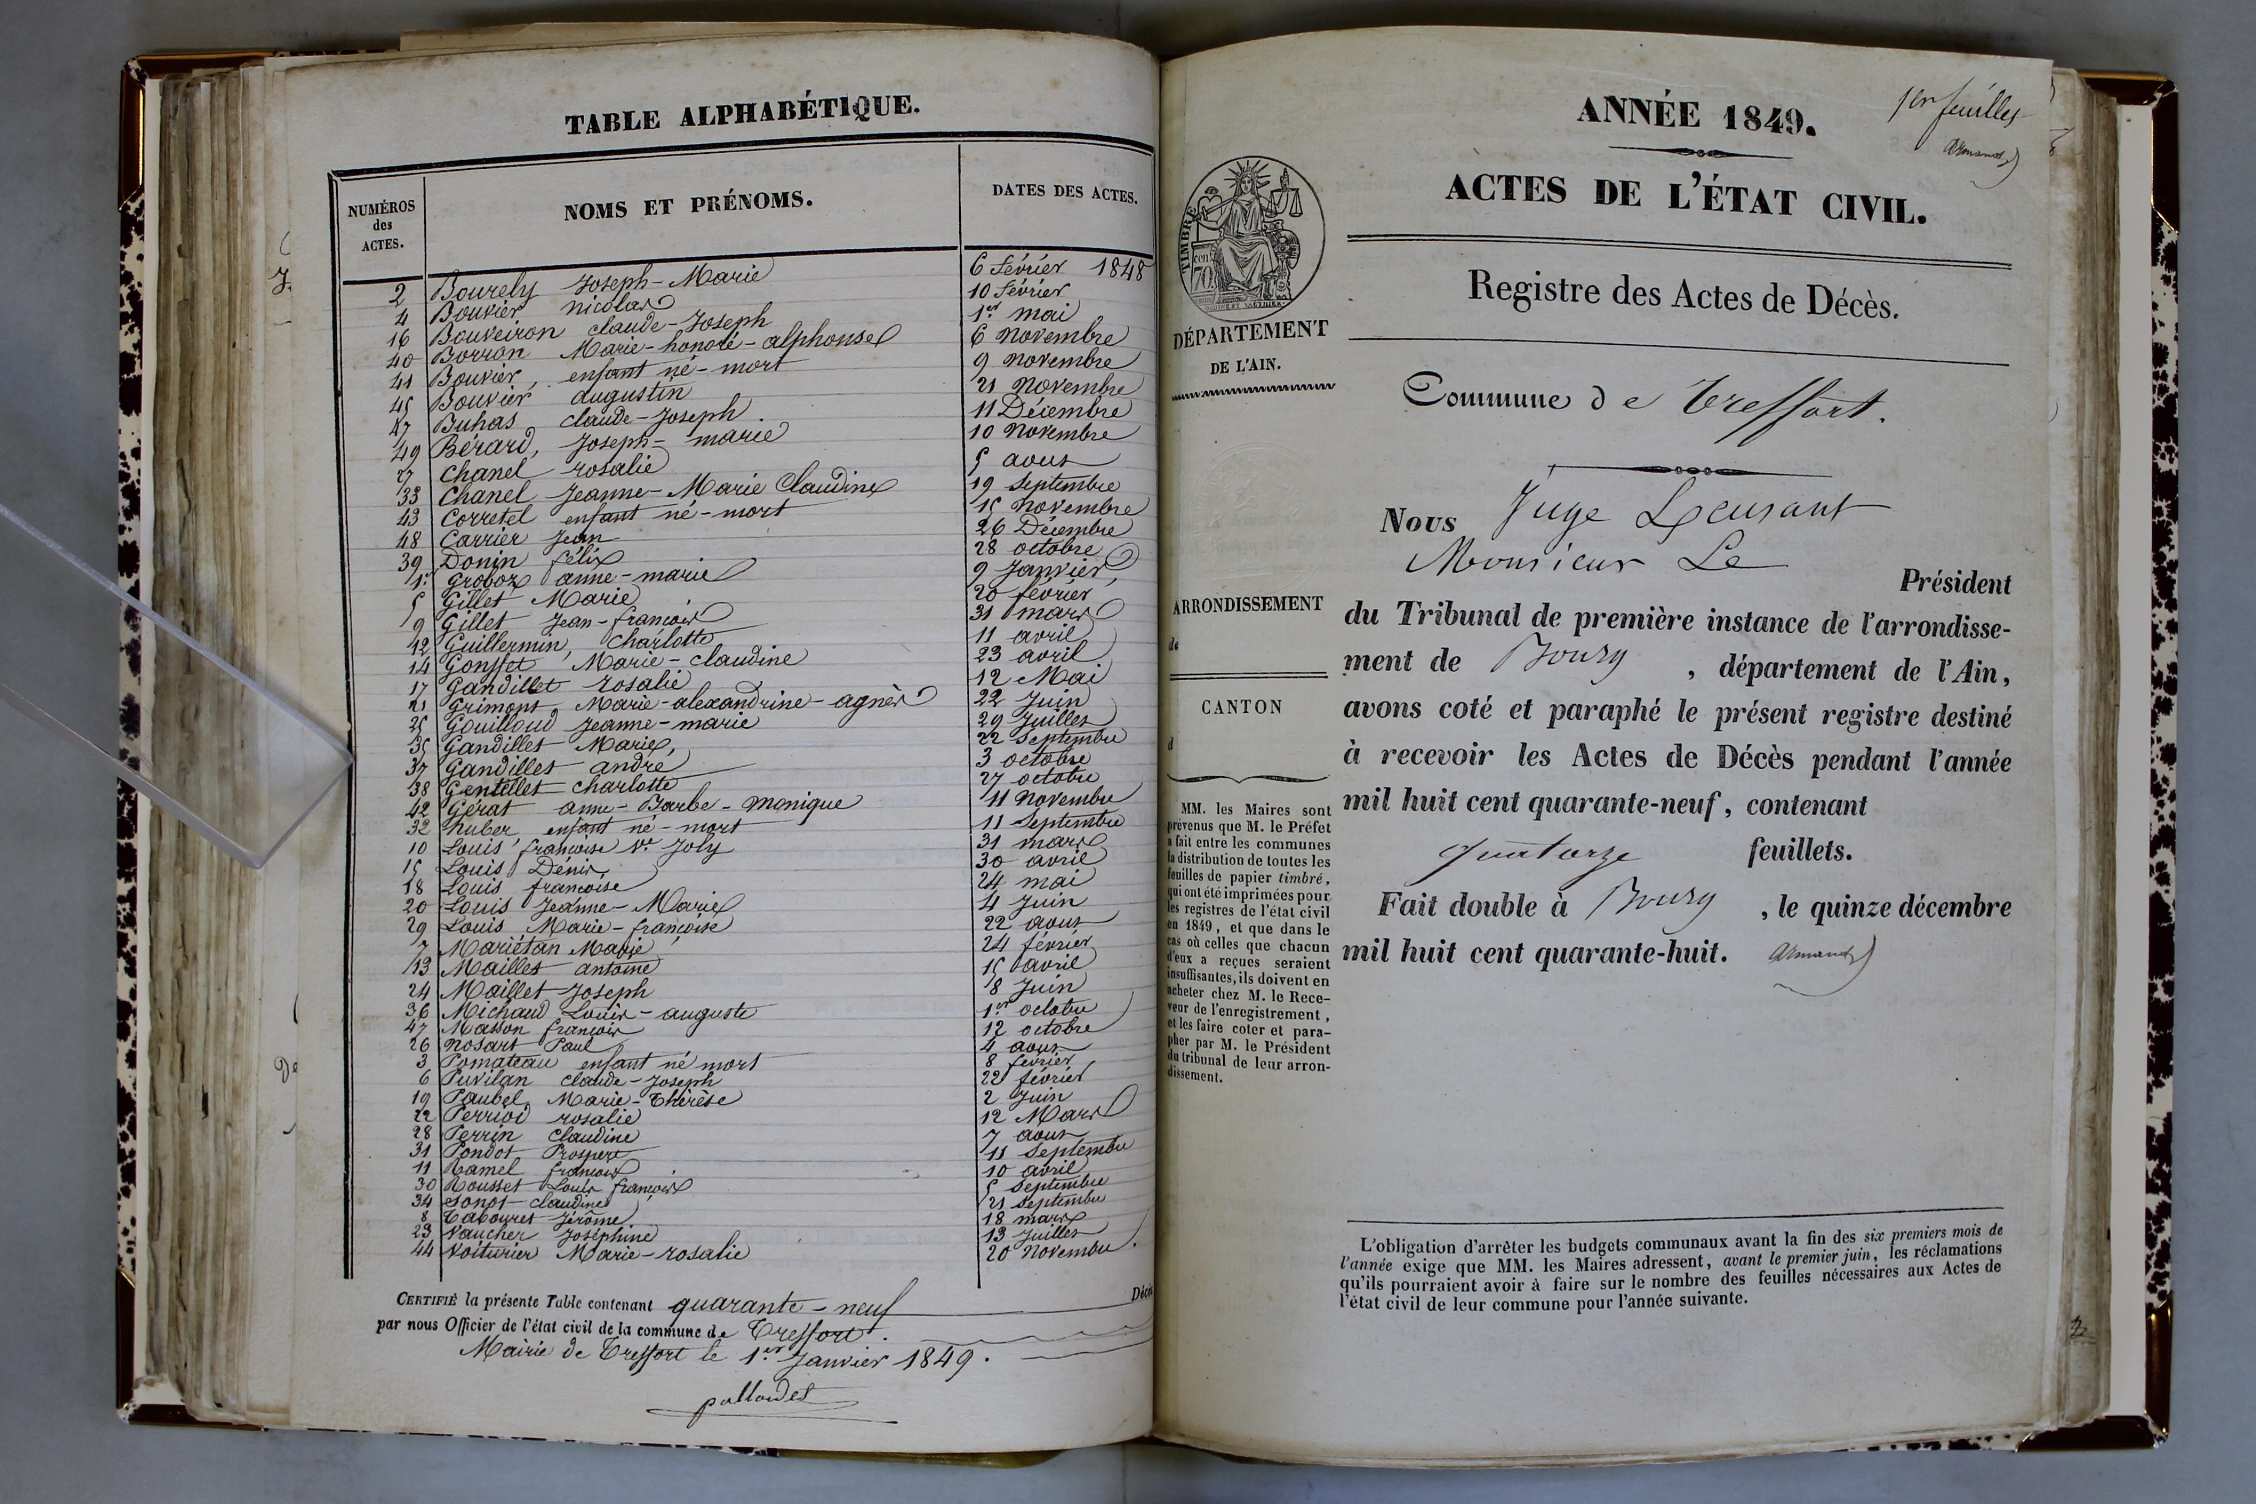 TABLE ALPHABÉTIQUE.
NUMÉROS
des
ACTES.
NOMS ET PRÉNOMS.
DATES DES ACTES.
2 Bourely Joseph-Marie 6 février 1848
4 Bouvier nicolas 10 février
16 Bouveiron claude-Joseph 1er mai
40 Borron Marie-honoré-alphonse 6 novembre
41 Bouvier, enfant né-mort 9 novembre
45 Bouvier augustin 21 novembre
47 Buhas claude-Joseph 11 Décembre
49 Bérard, Joseph-marie 10 novembre
27 Chanel rosalie 5 aout
33 Chanel Jeanne-Marie Claudine 19 Septembre
43 Corretel enfant né-mort 15 novembre
48 Carrier Jean 26 Décembre
39 Donin félix 28 octobre
1er Groboz anne-marie 9 Janvier
5 Gillet Marie 20 février
9 Gillet Jean-françois 31 mars
12 Guillermin, Charlotte 11 avril
14 Gonssot Marie-claudine 23 avril
17 Gandillet rosalie 12 Mai
21 Grimont Marie-alexandrine-agnès 22 Juin
25 Gouilloud Jeanne-marie 29 Juillet
35 Gandillet Marie, 22 Septembre
37 Gandillet andré 3 octobre
38 Gentillet charlotte 27 octobre
42 Gérat anne-Barbe-Monique 11 novembre
32 huber enfant né-mort 11 Septembre
10 Louis françoise Ve Joly 31 mars
15 Louis Dénis 30 avril
18 Louis françoise 24 mai
20 Louis Jeanne-Marie 4 Juin
29 Louis Marie-françoise 22 aout
7 Mariétan Marie 24 février
13 Maillet antoine 15 avril
24 Maillet Joseph 8 Juin
36 Michaud Louis-auguste 1er octobre
47 Masson françois 12 octobre
26 Nosart Paul 4 aout
3 Pomateau enfant né mort 8 février
6 Puvilan claude-Joseph 22 février
19 Paubel Marie-Thérèse 2 Juin
22 Perrioi rosalie 12 Mars
28 Perrin claudine 7 aout
31 Pondot Prospere 11 Septembre
11 Ramel françois 10 avril
30 Rousset Louis françois 5 Septembre
34 Sonot claudine 21 Septembre
8 Tabouret Jérôme 18 mars
23 Vaucher Joséphine 13 Juillet
44 Voiturier Marie-rosalie 20 novembre
CERTIFIÉ la présente Table contenant quarante-neuf Décès
par nous Officier de l'état civil de la commune de Treffort.
Mairie de Treffort le 1er Janvier 1849.
pallordet
1er feuillet
Armand
ANNÉE 1849.
ACTES DE L'ÉTAT CIVIL.
TIMBRE
70 cen
Registre des Actes de Décès.
DÉPARTEMENT
DE L'AIN.
Commune de Treffort.
Nous Juge
Monsieur Le
Président
du Tribunal de première instance de l'arrondisse-
ment de Bourg, département de l'Ain,
avons coté et paraphé le présent registre destiné
à recevoir les Actes de Décès pendant l'année
mil huit cent quarante-neuf, contenant
quatorze feuillets.
Fait double à Bourg, le quinze décembre
mil huit cent quarante-huit. Armand
ARRONDISSEMENT
de
CANTON
d
MM. les Maires sont
prévenus que M. le Préfet
a fait entre les communes
la distribution de toutes les
feuilles de papier timbré,
qui ont été imprimées pour
les registres de l'état civil
en 1849, et que dans le
cas où celles que chacun
d'eux a reçues seraient
insuffisantes, ils doivent en
acheter chez M. le Rece-
veur de l'enregistrement,
et les faire coter et para-
pher par M. le Président
du tribunal de leur arron-
dissement.
L'obligation d'arrêter les budgets communaux avant la fin des six premiers mois de
l'année exige que MM. les Maires adressent, avant le premier juin, les réclamations
qu'ils pourraient avoir à faire sur le nombre des feuilles nécessaires aux Actes de
l'état civil de leur commune pour l'année suivante.